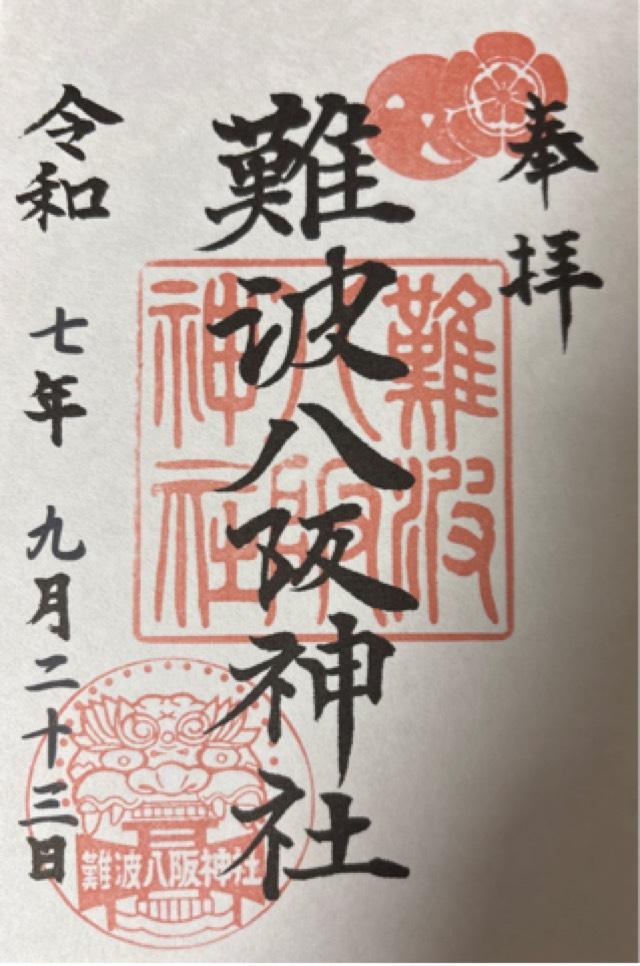 奉拝
難波八阪神社
難波八阪神社
令和 七年 九月二十三日
難波八阪神社